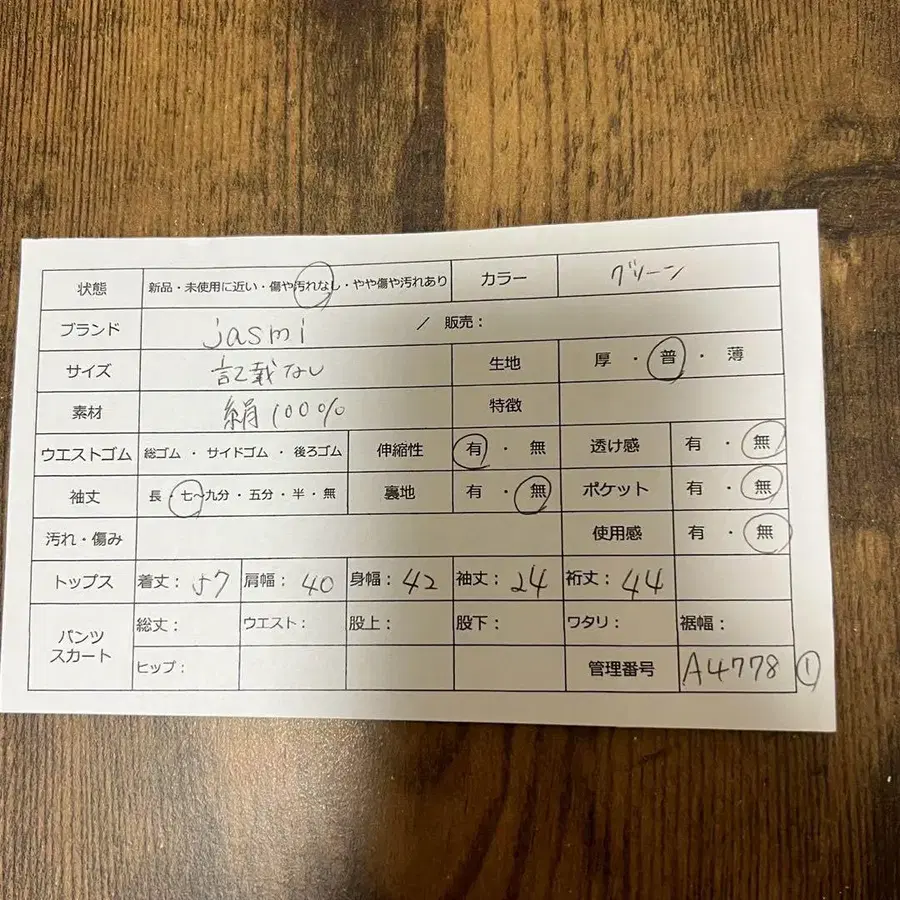 状態 新品・未使用に近い・傷や汚れなし・やや傷や汚れあり カラー グリーン
ブランド jasmi / 販売：
サイズ 記載なし 生地 厚・普・薄
素材 絹100% 特徴
ウエストゴム 総ゴム・サイドゴム・後ろゴム 伸縮性 有・無 透け感 有・無
袖丈 長・七〜九分・五分・半・無 裏地 有・無 ポケット 有・無
汚れ・傷み 使用感 有・無
トップス 着丈：57 肩幅：40 身幅：42 袖丈：24 裄丈：44
パンツ スカート 総丈： ウエスト： 股上： 股下： ワタリ： 裾幅：
ヒップ： 管理番号 A4778 ①